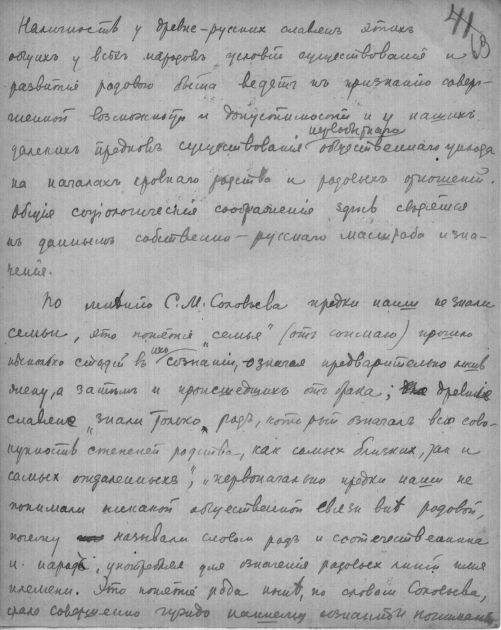 41
Наличность у древне-русских славянъ этихъ
общихъ у всѣхъ народовъ условій существованія и
развитія родового быта ведетъ къ признанію совер-
шенной возможности и допустимости и у нашихъ
первобытнаго
далекихъ предковъ существованія общественнаго уклада
на началахъ кровнаго родства и родовыхъ отношеній.
Общія соціологическія соображенія здѣсь сводятся
къ даннымъ собственно-русскаго масштаба и зна-
ченія.
По мнѣнію С.М. Соловьева предки наши не знали
семьи, это понятіе "семья" (отъ сонмаю) прошло
нѣсколько стадій въ ихъ сознаніи, означая предварительно лишь
жену, а затѣмъ и происшедшихъ отъ брака; древніе
славяне "знали только родъ, который означалъ всю сово-
купность степеней родства, какъ самыхъ близкихъ, так и
самыхъ отдаленныхъ", "первоначально предки наши не
понимали никакой общественной связи внѣ родовой,
почему называли словом родъ и соотечественника
и народъ, употребляя для означенія родовыхъ линій имя
племени. Это понятіе рода нынѣ, по словам Соловьева,
стало совершенно чуждо нашему